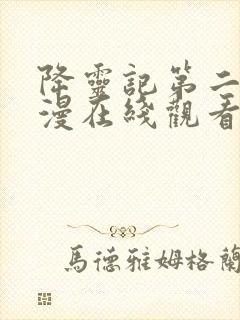 降靈記第二
漫在綫觀看
馬德雅姆格蘭